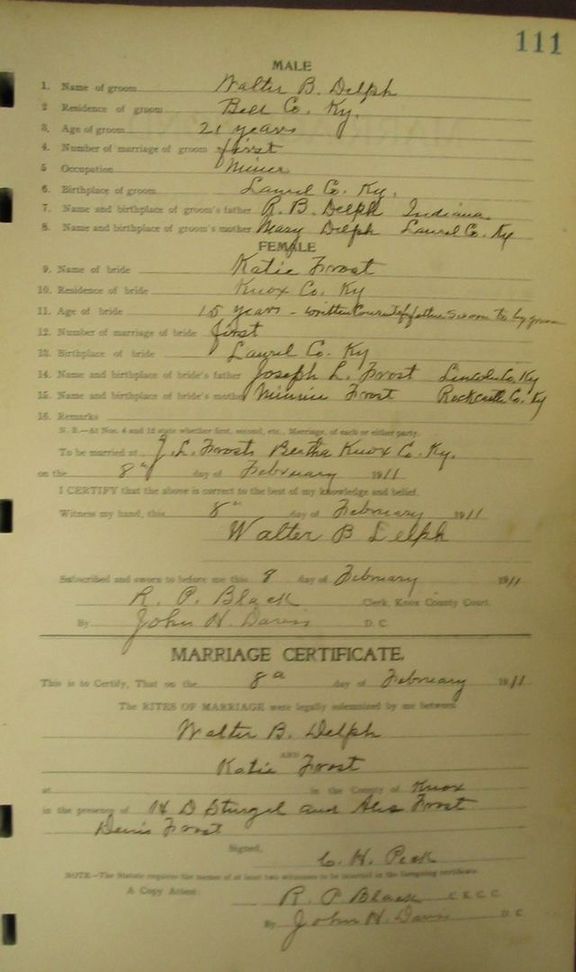 111
MALE
1. Name of groom Walter B. Delph
2 Residence of groom Bell Co. Ky.
3. Age of groom 21 years
4. Number of marriage of groom first
5 Occupation Miner
6. Birthplace of groom Laurel Co. Ky.
7. Name and birthplace of groom's father R. B. Delph Indiana
8. Name and birthplace of groom's mother Mary Delph Laurel Co. Ky
FEMALE
9. Name of bride Katie Frost
10. Residence of bride Knox Co. Ky
11. Age of bride 15 years - written Consent of father Sworn to by groom
12. Number of marriage of bride first
13. Birthplace of bride Laurel Co. Ky
14. Name and birthplace of bride's father Joseph L. Frost Lincoln Co, Ky
15. Name and birthplace of bride's mother Minnie Frost Rockcastle Co. Ky
16. Remarks
N. B.—At Nos. 4 and 12 state whether first, second, etc., Marriage, of each or either party.
To be married at J. L. Frosts Bertha Knox Co. Ky.
on the 8" day of February 1911
I CERTIFY that the above is correct to the best of my knowledge and belief.
Witness my hand, this 8" day of February 1911
Walter B Delph
Subscribed and sworn to before me this 8 day of February 1911
R. P. Black Clerk Knox County Court.
By John H. Davis D. C
MARRIAGE CERTIFICATE.
This is to Certify, That on the 8 day of February 1911
The RITES OF MARRIAGE were legally solemnized by me between
Walter B. Delph
AND
Katie Frost
at in the County of Knox
in the presence of H D Sturgel and Frost
Frost
Signed, C. H. Peek
NOTE—The Statute requires the names of at least two witnesses to be inserted in the foregoing certificate.
A Copy Attest: R. P Black C. K. C. C.
By John H. Davis D C